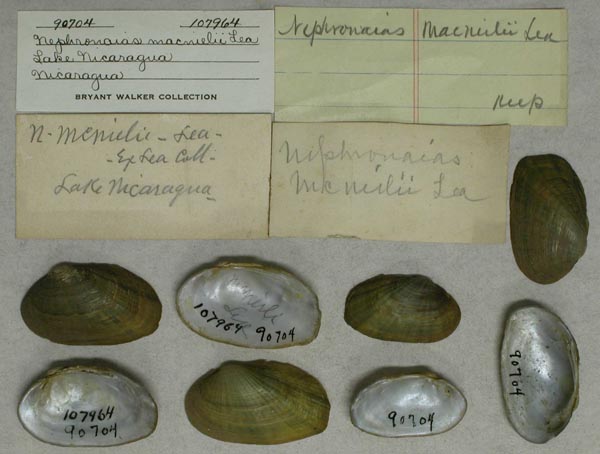 90704 107964
Nephronaias macnielii Lea
Lake Nicaragua
Nicaragua
BRYANT WALKER COLLECTION
Nephronaias Macnielii Lea
N. McNielii - Lea -
- Ex Lea Coll -
Lake Nicaragua -
Nephronaias
McNielii Lea
macnielii
Lea
107964 90704
107964
90704
90704
90704